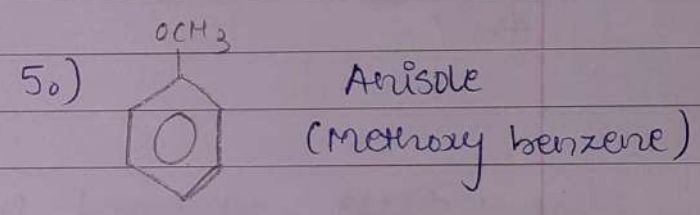 OCH3
5.) Anisole
(Methoxy benzene)